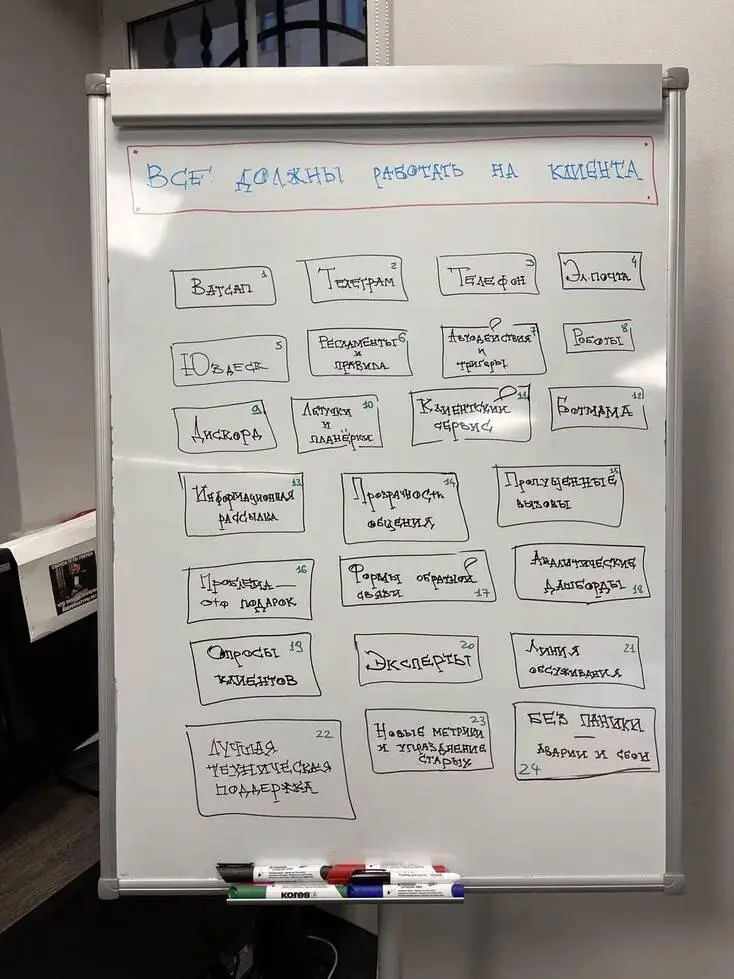 ВСЕ ДОЛЖНЫ РАБОТАТЬ НА КЛИЕНТА
Ватсап 1
Телеграм 2
Телефон 3
Эл.почта 4
Юздеск 5
Регламенты 6
и
правила
Автодействия 7
и
тригеры
Роботы 8
Дискорд 9
Летучки 10
и
планёрки
Клиентский 11
сервис
Ботмама 12
Информационная 13
рассылка
Прозрачность 14
общения
Пропущенные 15
вызовы
Проблема — 16
это подарок
Формы обратной
связи 17
Аналитические
дашборды 18
Опросы 19
клиентов
Эксперты 20
Линия 21
обсуживания
22
Лучшая
техническая
поддержка
23
Новые метрики
и упразднение
старых
БЕЗ ПАНИКИ
—
аварии и сбои
24
kores